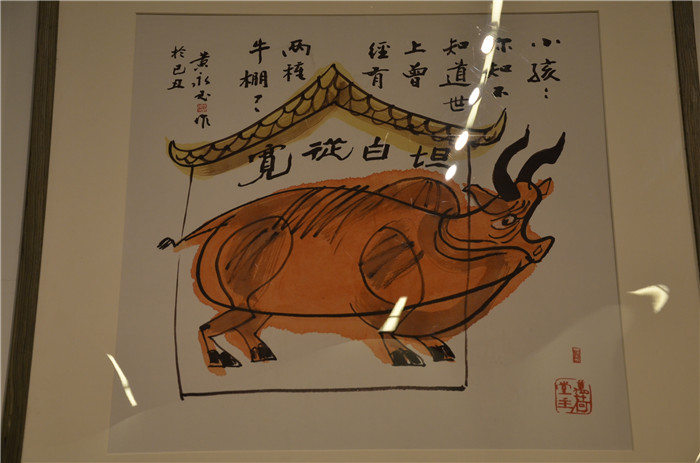 小孩：
你知不
知道世
上曾
經有
两種
牛棚？？
黄永玉作
於己丑
坦白從寬